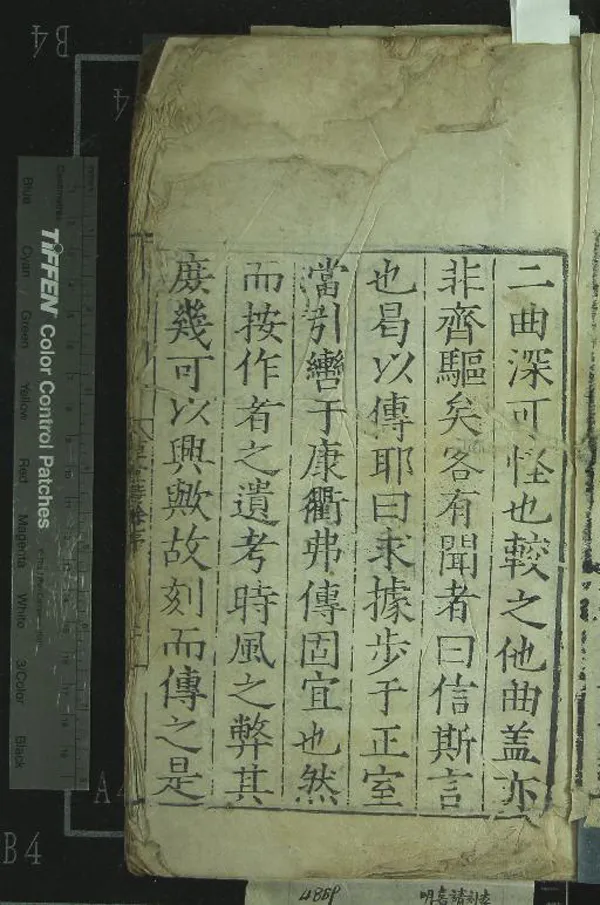 二曲深可怪也較之他曲盖亦
非齊驅矣客有聞者曰信斯言
也曷以傳耶曰求據步于正室
當引轡于康衢弗傳固宜也然
而按作者之遺考時風之弊其
庻幾可以興歟故刻而傳之是
B4
4
TIFFEN Color Control Patches
Blue
Cyan
Green
Yellow
Red
Magenta
White
3/Color
Black
A4
B4